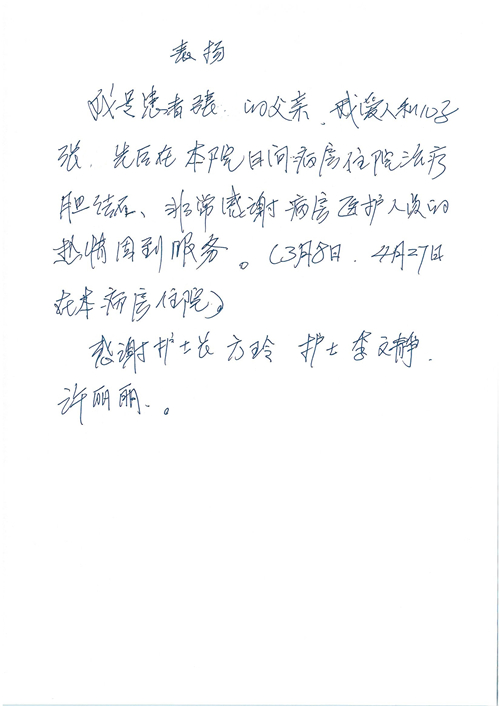 表扬
我是患者张.的父亲.我爱人和儿子
张.先后在本院日间病房住院治疗
胆结石、非常感谢病房医护人员的
热情周到服务。(3月8日.4月27日
在本病房住院)
感谢护士长方玲 护士李文静.
许丽丽.。